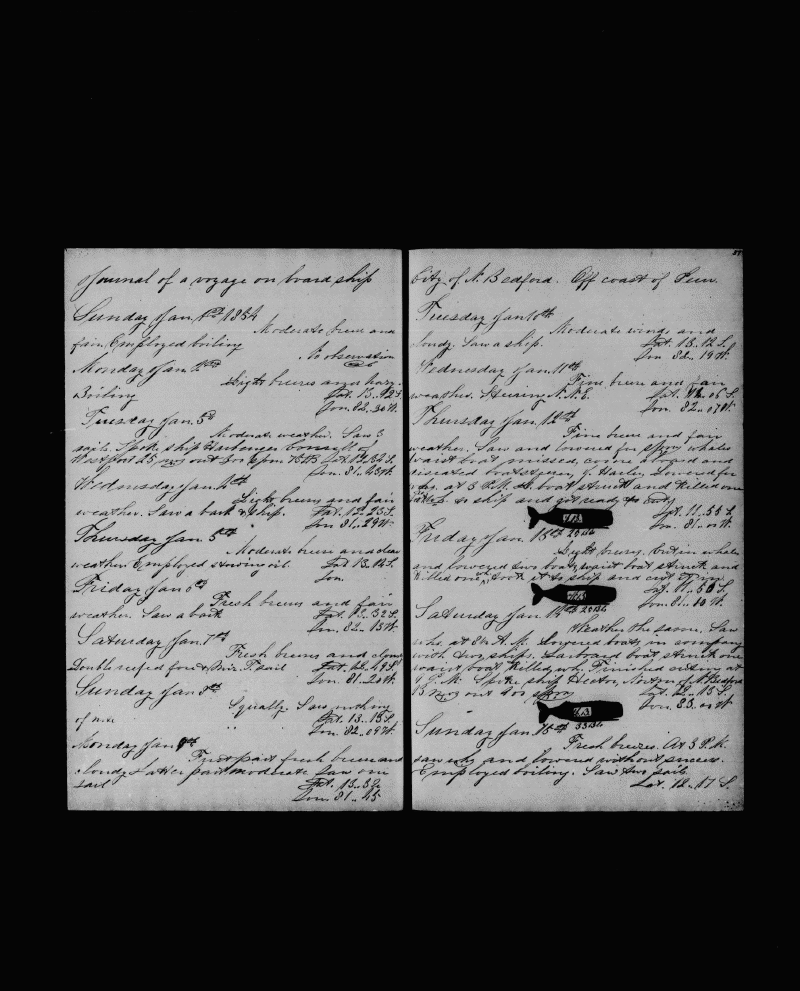 Journal of a voyage on board ship
Sunday Jan 1st 1854
Moderate breeze and
fair. Employed boiling
No observation
Monday Jan
Light breezes and hazy.
Boiling Lat. 13..42 S.
Lon. 82..30 W.
Tuesday Jan. 3d
Moderate weather. Saw 3
sails. Spoke ship Harbinger of
Westport 25 mos out Lat. 13..32 S.
Lon. 81..43 W.
Wednesday Jan. 4th
Light breeze and fair
weather. Saw a bark & ship. Lat. 12..25 S.
Lon 81..29 W.
Thursday Jan. 5th
Moderate breeze and clear
weather Employed stowing oil. Lat 13..12 S.
Lon.
Friday Jan 6th
Fresh breeze and fair
weather. Saw a bark Lat. 12..32 S.
Lon. 82..13 W.
Saturday Jan. 7th
Fresh breeze and cloudy
Double reefed fore & Miz. T. sail Lat. 12..49 S.
Lon. 81..20 W.
Sunday Jan 8th
Squally. Saw nothing
of note Lat. 13..15 S.
Lon. 82..09 W.
Monday Jan 9th
First part fresh breeze and
cloudy Latter part moderate Saw one
sail Lat. 13..39
Lon. 81..45
City of N. Bedford. Off coast of Peru.
Tuesday Jan 10th
Moderate wings and
cloudy. Saw a ship. Lat. 13..12 S.
Lon 82..19 W.
Wednesday Jan. 11th
Fine breeze and fair
weather. Steering N.N.E. Lat. 12..06 S.
Lon. 82..07 W.
Thursday Jan. 12th
Fine breeze and fair
weather. Saw and lowered for sperm whales
waist boat missed, come and
boatsteerer, J. Harley. Lowered for
at 3 P.M. boat struck and killed one
to ship and got ready to cut
Lat. 11..55 S.
Lon. 81..00 W.
Friday Jan. 13th
25 bbls
Light breeze. Cut in whale
and lowered two boats, waist boat struck and
killed one, took it to ship and cut in
Lat. 11..50 S.
Lon. 81..10 W.
Saturday Jan. 14th
20 bbls
Weather the same. Saw
whs at 8 A.M. Lowered boats in company
with two ships. Larboard boat struck one
waist boat killed wh. Finished cutting at
P.M. Spoke ship Hector, Norton of N. Bedford
mos out 400 sperm Lat. 12..13 S.
Lon. 83..00 W.
Sunday Jan. 15th
35 bbls
Fresh breezes. At 3 P.M.
saw whs and lowered without success.
Employed boiling. Saw two sails
Lat. 12..17 S.